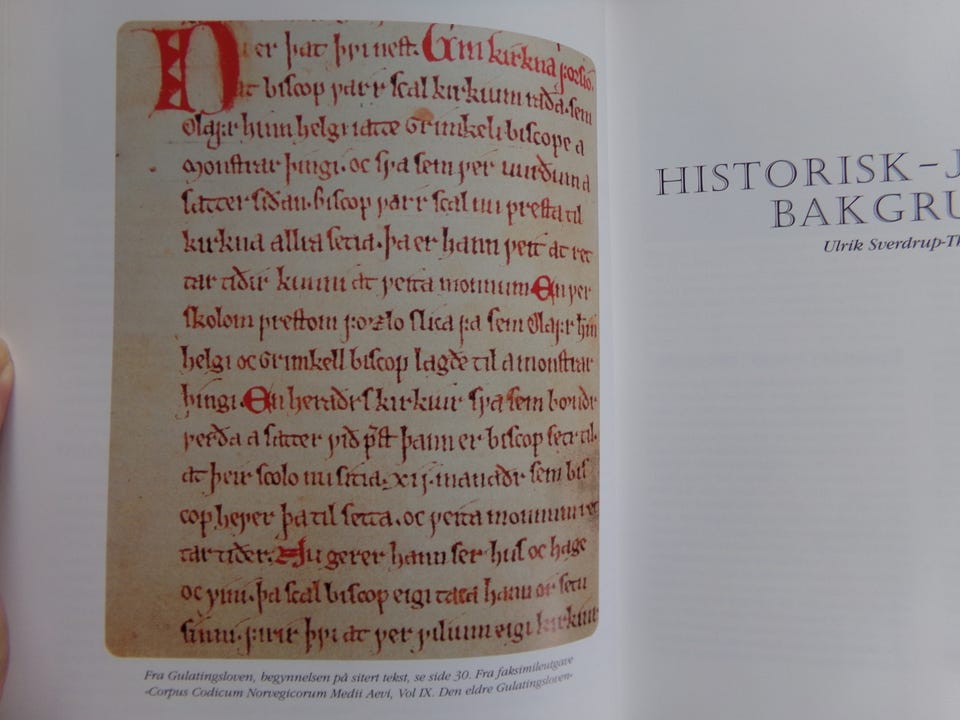 er þat þvi nest. Um kirkna forsio.
Þat biscop varr scal kirkium raða. sem
Olafr hinn helgi iatte Grimkeli biscope a
Monstrar þingi. oc sva sem ver urðum a
satter siðan. biscop varr scal nu presta til
kirkna allra setia. þa er hann veit at ret
tar tiðir kunnu at veita monnum. En ver
skolom prestom forzlo slica fa sem Olafr hin
helgi oc Grimkell biscop lagðe til a monstrar
þingi. En heradrs kirkiur sva sem bondr
verða a satter við prest þann er biscop setr til.
at þeir scolo nu sitia. xij. manaðr sem bis
cop hever þa til setta. oc veita monnum ret
tar tiðer. Nu gerer hann ser hus oc hage
oc vini. þa scal biscop eigi taca hann or setu
sinni. firir þvi at ver vilium eigi kirkiur
Fra Gulatingsloven, begynnelsen på sitert tekst, se side 30. Fra faksimileutgave
«Corpus Codicum Norvegicorum Medii Aevi, Vol IX. Den eldre Gulatingsloven»
HISTORISK–J
BAKGRU
Ulrik Sverdrup-Th